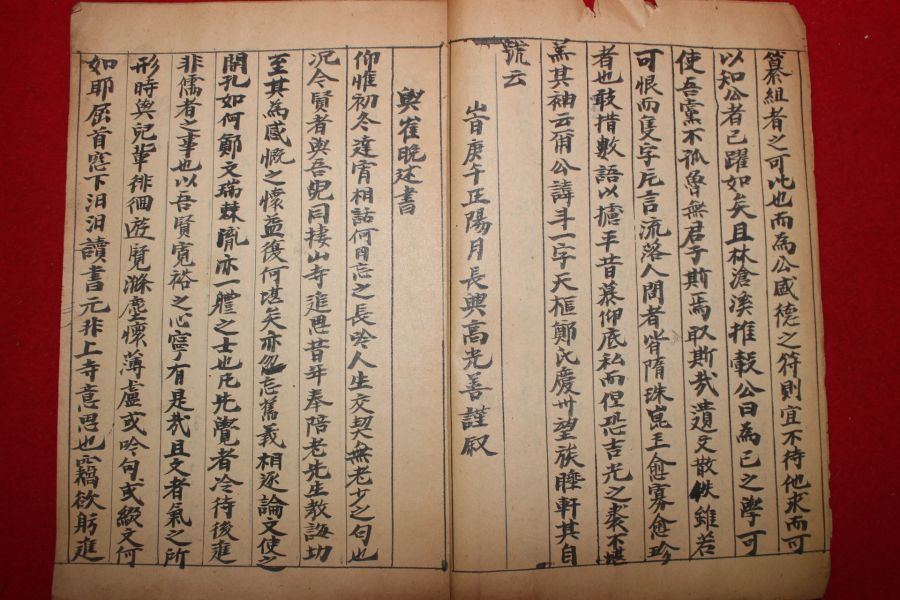 纂組者之可比也而為公感德之符則宜不待他求而可
以知公者已躍如矣且林滄溪推轂公曰為己之學可
使吾黨不孤魯無君子斯焉取斯哉遺文散佚雖若
可恨而隻字片言流落人間者皆隋珠崑玉愈寡愈珍
者也敢措數語以攄平昔慕仰底私而但恐吉光之裘不堪
羔其袖云爾公諱斗一字天樞鄭氏慶州望族睡軒其自
號云
旹庚午正陽月長興高光善謹叙
與崔晚述書
仰惟初冬達宵相話何日忘之長吟人生交契無老少之句也
况今賢者與吾兒同棲山寺追思昔年奉陪老先生教誨功
至其為感慨之懷益復何堪矣亦忽忘舊義相逐論文使之
開孔如何鄭文瑞棘胤亦一體之士也凡先覺者冷待後進
非儒者之事也以吾賢寬裕之心寧有是哉且文者氣之所
形時與兒輩徘徊遊覽滌塵懷薄虛或吟句或綴文何
如耶屈首窓下汨汨讀書元非上寺意思也竊欲躬進